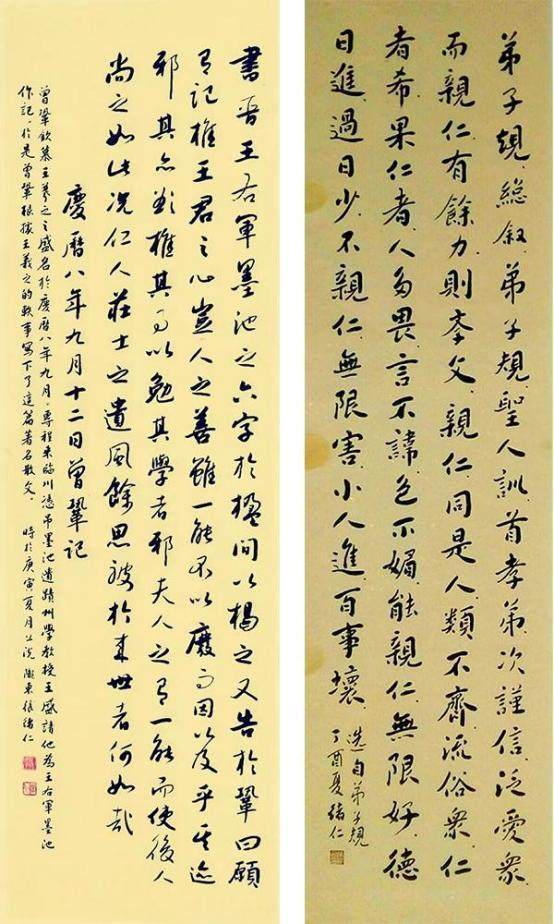 弟子規.総叙.弟子規聖人訓.首孝弟次謹信.泛愛衆
而親仁.有餘力則学文.親仁.同是人類不齊.流俗衆仁
者希.果仁者人多畏.言不諱色不媚.能親仁無限好.德
日進過日少.不親仁無限害.小人進百事壞.
選自弟子規
丁酉夏緒仁
書晉王右軍墨池之六字於楹間以揭之又告於鞏曰願
有記推王君之心豈人之善雖一能不以廢而因以及乎其迹
邪其亦欲推其事以勉其學者邪夫人之有一能而使後人
尚之如此況仁人莊士之遺風餘思被於來世者何如哉
慶曆八年九月十二日曾鞏記
曾鞏欽慕王羲之之盛名於慶曆八年九月.專程來臨川憑吊墨池遺蹟州學教授王盛請他為王右軍墨池
作記.於是曾鞏根據王羲之的軼事寫下了這篇著名散文. 時於庚寅夏月上浣 緒仁